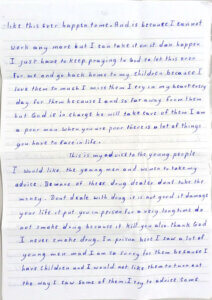 like this ever happen to me. And is because I cannot
work any more but I can take it on it dan happen
I just have to keep praying to God to let this over
for me and go back home to my children because I
love them so much I miss them I cry in my heart every
day for them because I and so far away from them
but God is in charge he will take care of them I am
a poor man when you are poor there is a lot of things
you have to face in life.
This is my advice to the young people
I would like the young men and women to take my
advice. Beware of these drug dealer dont take the
money. Dont deals with drug it is not good it damage
your life it put you in prison for a very long time do
not smoke drug because it kill you also thank God
I never smoke drug. In prison here I saw a lot of
young men mad I am so sorry for them because I
have children and I would not like them to turn out
the way I saw some of them I try to advise some